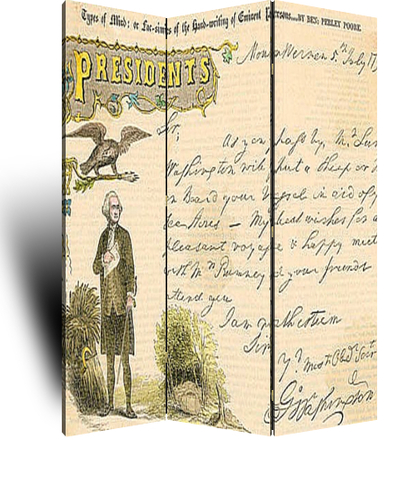 Types of Mind; or Fac-similes of the Hand-writing of Eminent Persons....BY BEN: PERLEY POORE.
PRESIDENTS
Mount Vernon 5th July 17
Sir,
As you pass by, Mrs
Washington will put a Sheep or
on board your Vessel in aid of
Stores — My best wishes for a
pleasant voyage & happy meet
with Mrs & your friends
attend you
I am with esteem
Sir
Yr Most Obedt Servt
Go Washington